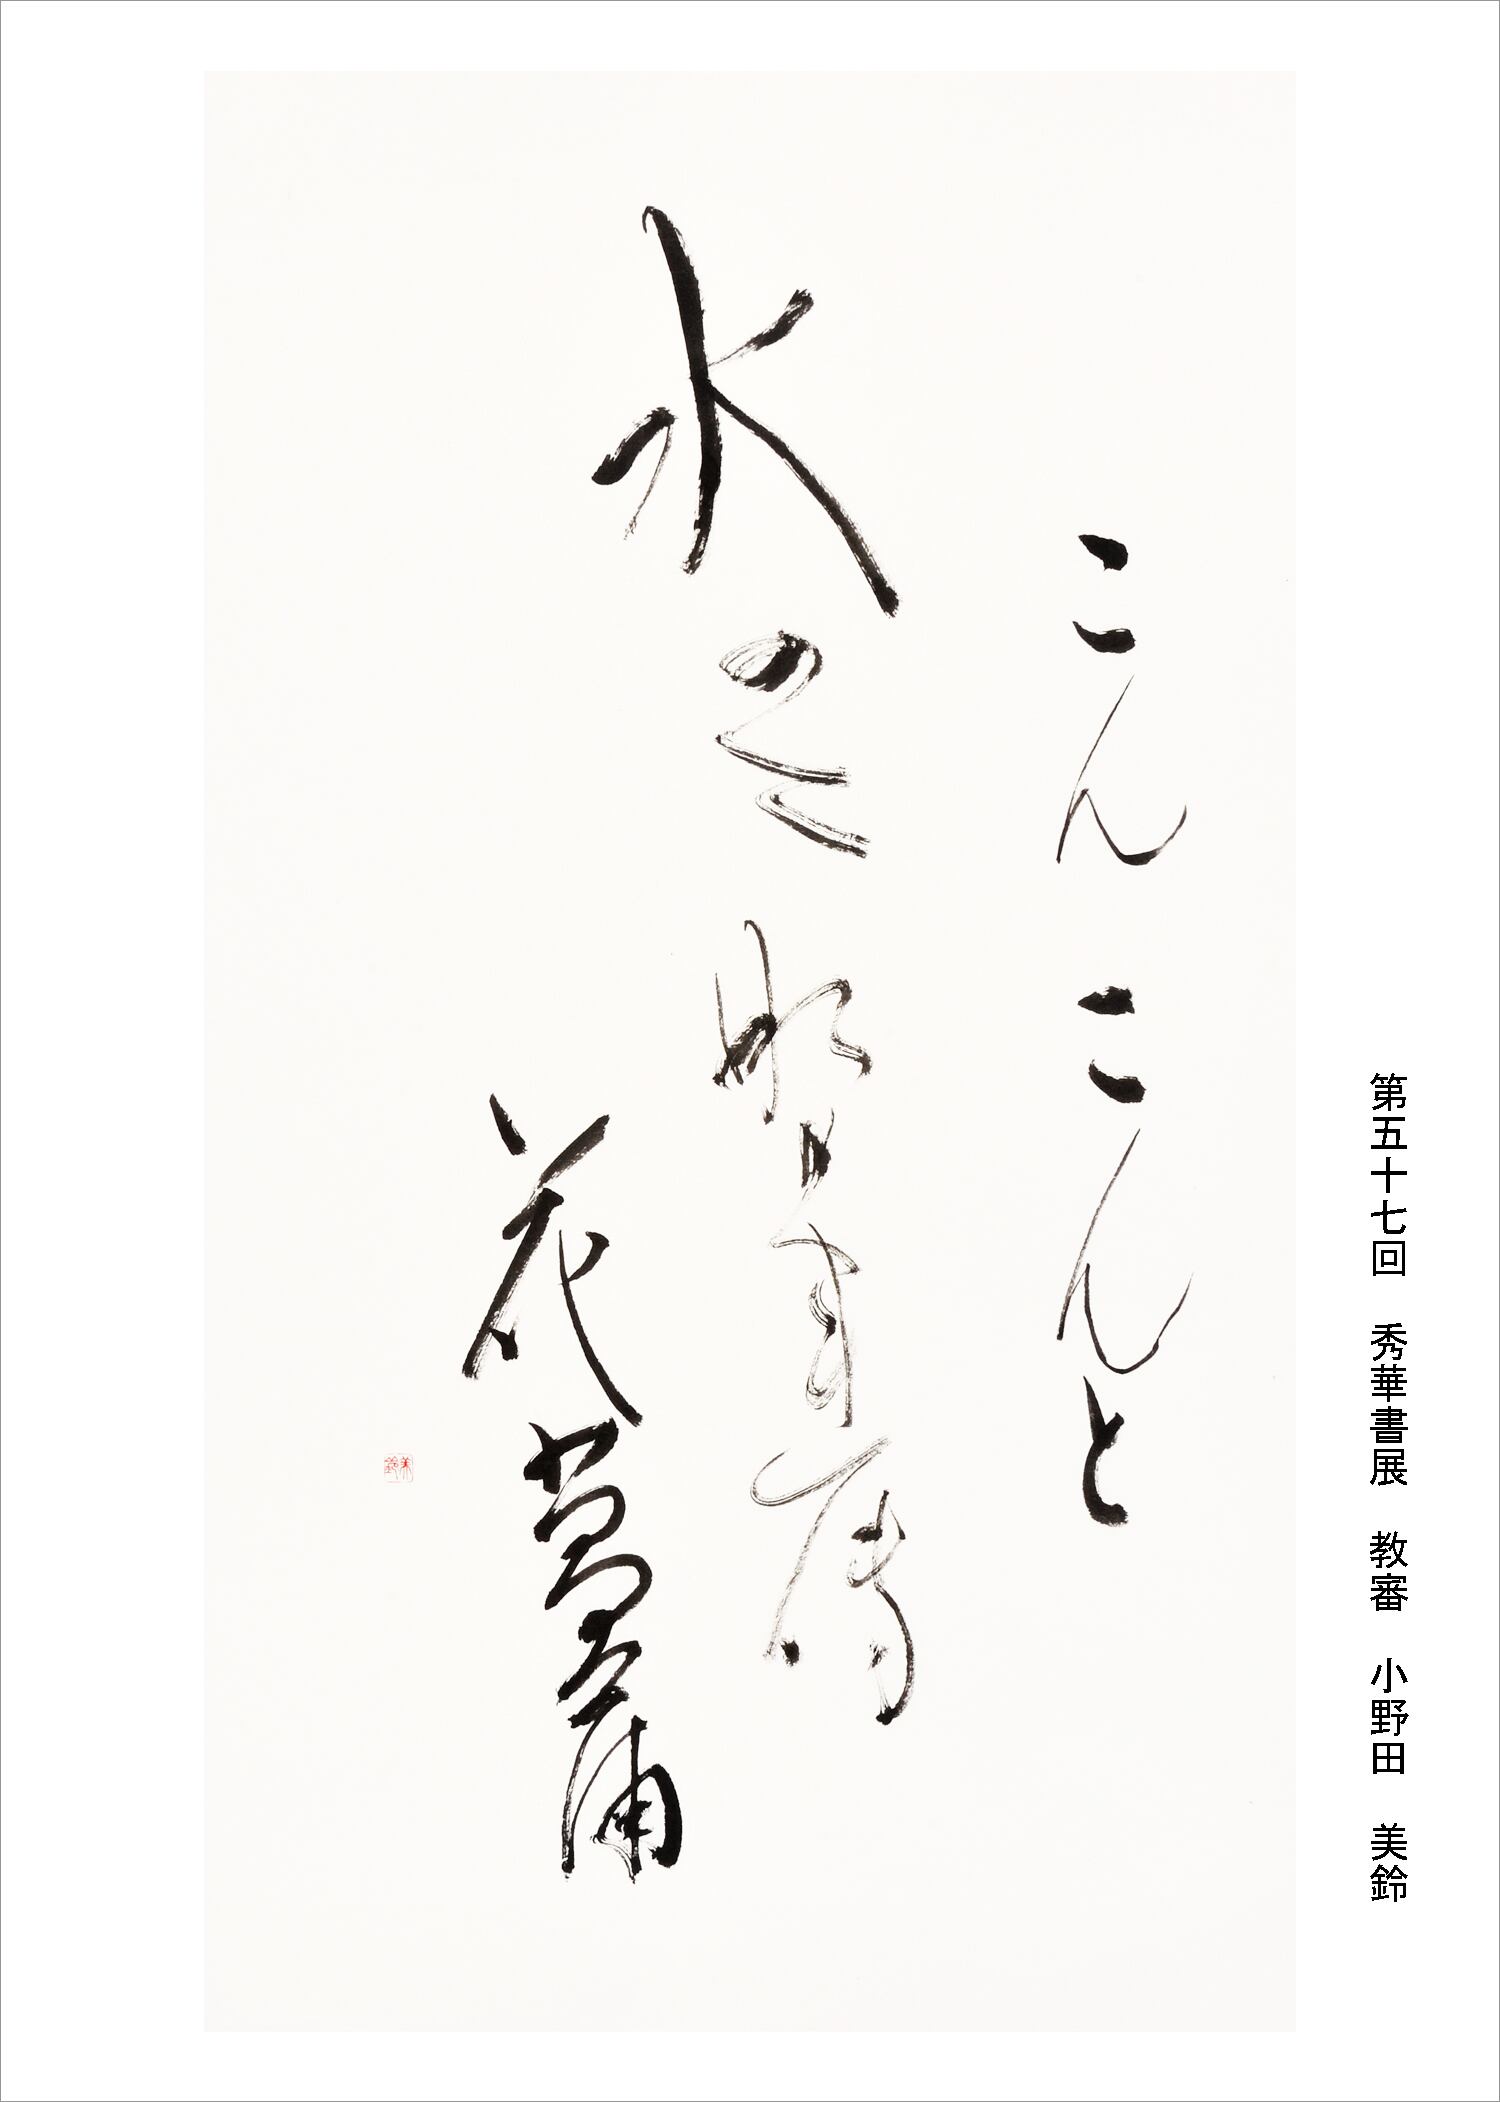 第五十七回　秀華書展　教審　小野田　美鈴
こんこんと
水
花菖蒲
美鈴